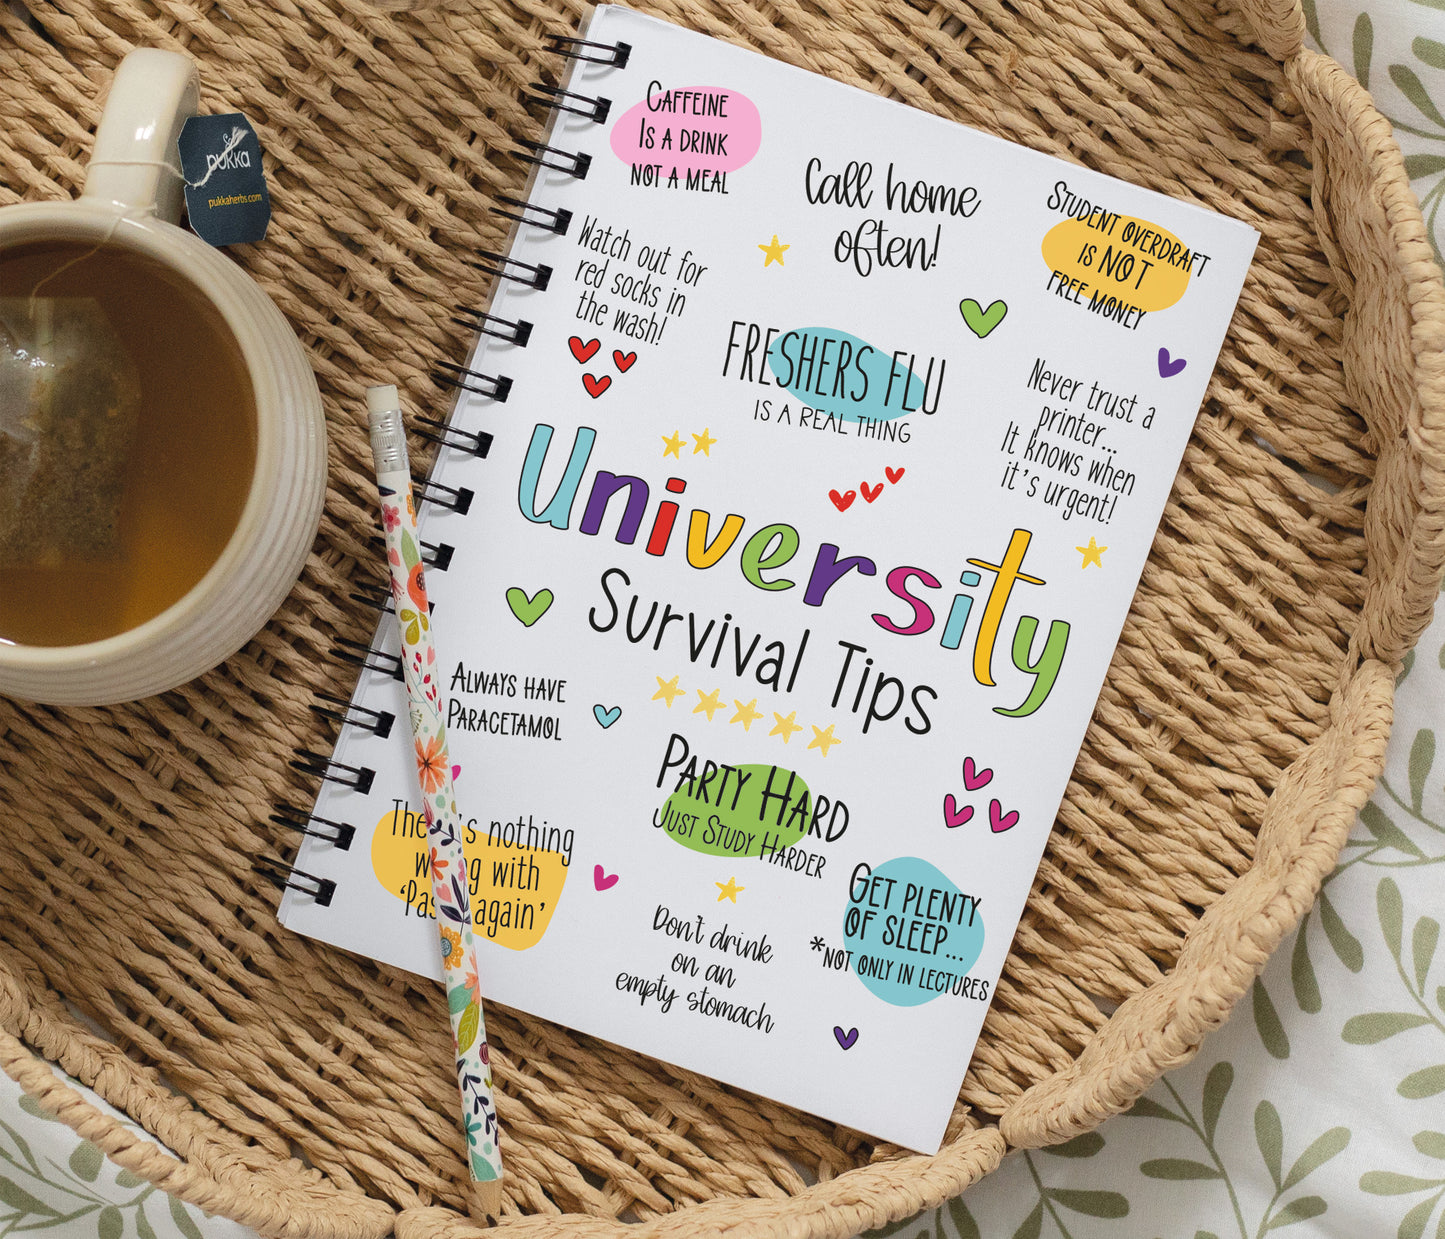 pukka
pukkaherbs.com
CAFFEINE
IS A DRINK
NOT A MEAL
Call home
often!
STUDENT OVERDRAFT
IS NOT
FREE MONEY
Watch out for
red socks in
the wash!
FRESHERS FLU
IS A REAL THING
Never trust a
printer...
It knows when
it's urgent!
University
Survival Tips
ALWAYS HAVE
PARACETAMOL
PARTY HARD
JUST STUDY HARDER
nothing
with
again'
GET PLENTY
OF SLEEP...
*NOT ONLY IN LECTURES
Don't drink
on an
empty stomach